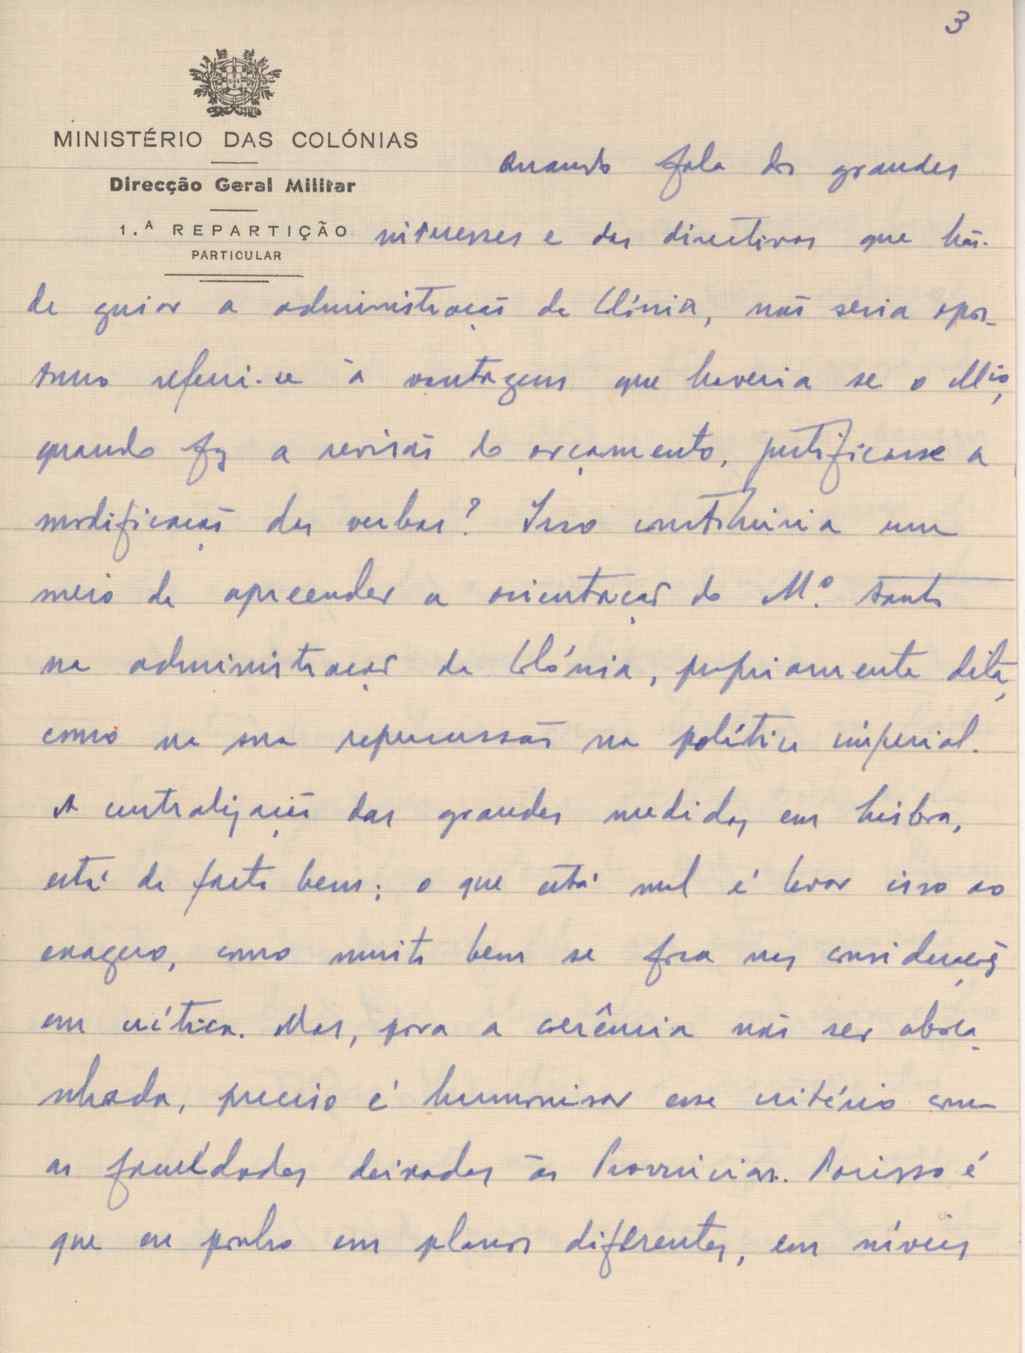 3
MINISTÉRIO DAS COLÓNIAS
Direcção Geral Militar
1.ª REPARTIÇÃO
PARTICULAR
Quando fala dos grandes
interesses e das directivas que hão-
de guiar a administração da Colónia, não seria opor-
tuno referir-se à vantagem que haveria se o Mio,
quando fez a revisão do orçamento, justificasse a
modificação das verbas? Isso constituiria um
meio de apreender a orientação do M.º tanto
na administração da Colónia, propriamente dita,
como na sua repercussão na política imperial.
A centralização das grandes medidas em Lisboa,
está de facto bem; o que está mal é levar isso ao
exagero, como muito bem se foca nas considerações
em crítica. Mas, para a coerência não ser aboca
nhada, preciso é harmonisar esse critério com
as faculdades deixadas às Províncias. Porisso é
que eu ponho em planos diferentes, em níveis